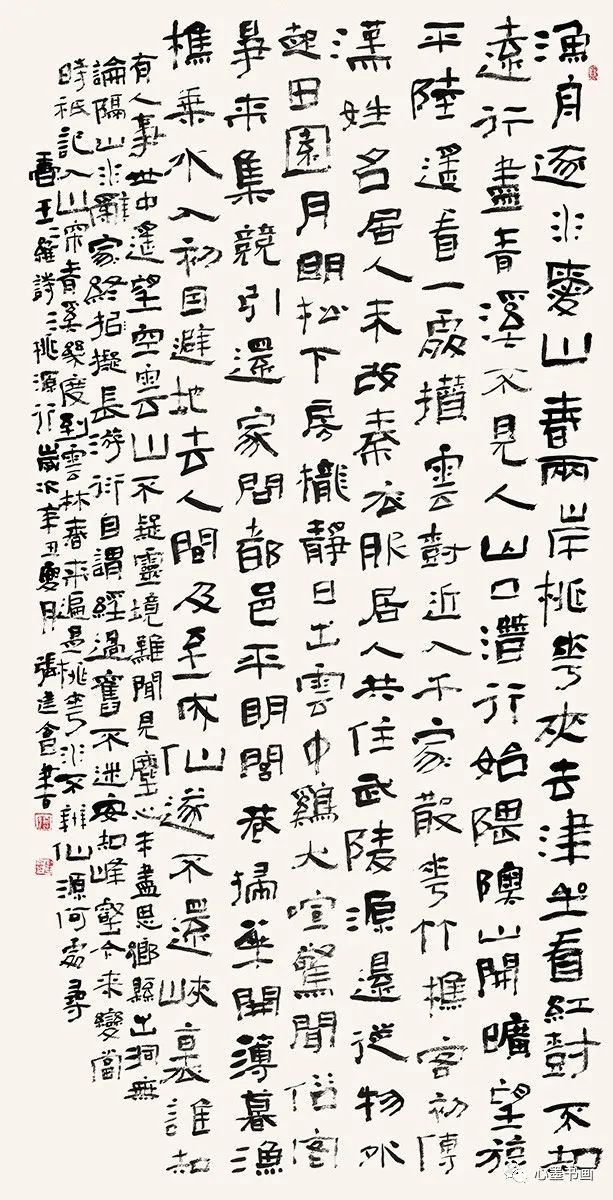 漁舟逐水愛山春兩岸桃華夾去津坐看紅樹不知
遠行盡青溪不見人山口潛行始隈隩山開曠望旋
平陸遙看一處攢雲樹近入千家散華竹樵客初傳
漢姓名居人未改秦衣服居人共住武陵源還從物外
起田園月明松下房櫳靜日出雲中鷄犬喧驚聞俗客
爭來集競引還家問都邑平明閭巷掃華開薄暮漁
樵乘水入初因避地去人間及至成仙遂不還峽裏誰知
有人事世中遙望空雲山不疑靈境難聞見塵心未盡思鄉縣出洞無
論隔山水辭家終擬長游衍自謂經過舊不迷安知峰壑今來變當
時祇記入山深青溪幾度到雲林春來遍是桃華水不辨仙源何處尋
書王維詩桃源行歲次辛丑夏月張建會書
心墨书画